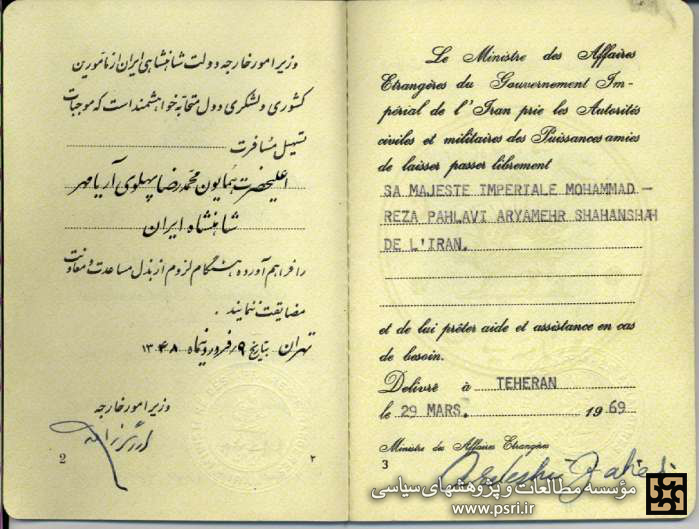 وزیر امور خارجه دولت شاهنشاهی ایران از مأمورین
کشوری و لشکری دول متحابه خواهشمند است که موجبات
تسهیل مسافرت
اعلیحضرت همایون محمد رضا پهلوی آریامهر
شاهنشاه ایران
را فراهم آورده هنگام لزوم از بذل مساعدت و معاونت
مضایقت ننمایند .
تهران بتاریخ ۹ فروردینماه ۱۳۴۸
وزیر امور خارجه
2
۲
Le Ministre des Affaires
Etrangères du Gouvernement Im-
périal de l'Iran prie les Autorités
civiles et militaires des Puissances amies
de laisser passer librement
SA MAJESTE IMPERIALE MOHAMMAD –
REZA PAHLAVI ARYAMEHR SHAHANSHAH
DE L'IRAN.
et de lui prêter aide et assistance en cas
de besoin.
Délivré à TEHERAN
le 29 MARS. 1969
Ministre des Affaires Etrangères
3
Ardeshir Zahedi
مؤسسه مطالعات و پژوهشهای سیاسی
www.psri.ir